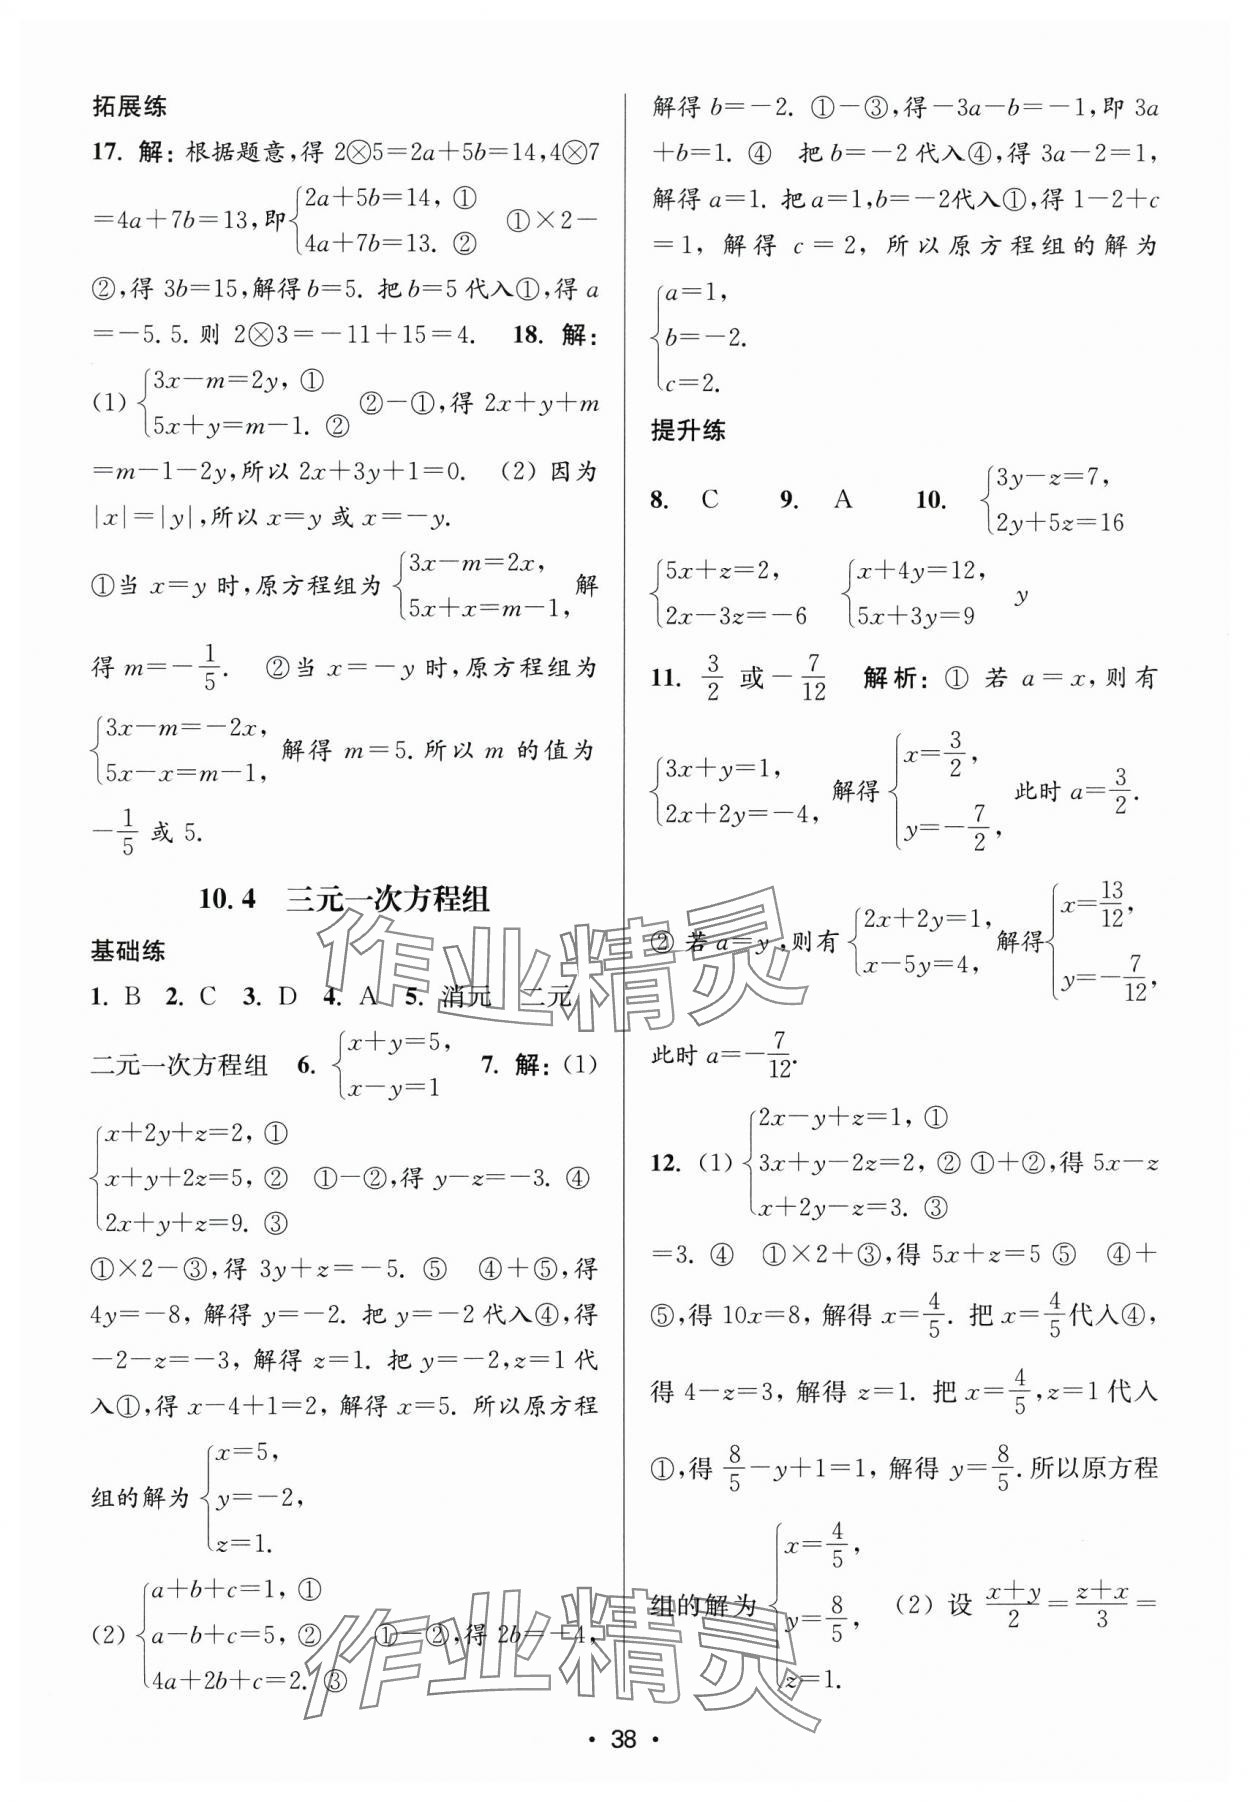 拓展练
17. 解:根据题意,得 2⊗5=2a+5b=14,4⊗7
=4a+7b=13,即{2a+5b=14, ① 4a+7b=13. ② ①×2-
②,得 3b=15,解得b=5. 把b=5代入①,得a
=-5.5. 则 2⊗3=-11+15=4. 18. 解:
(1){3x-m=2y, ① 5x+y=m-1. ② ②-①,得 2x+y+m
=m-1-2y,所以 2x+3y+1=0. (2) 因为
|x|=|y|,所以 x=y 或 x=-y.
①当 x=y 时,原方程组为{3x-m=2x, 5x+x=m-1, 解
得 m=-1/5. ②当 x=-y 时,原方程组为
{3x-m=-2x, 5x-x=m-1, 解得 m=5. 所以 m 的值为
-1/5 或 5.
10.4 三元一次方程组
基础练
1. B 2. C 3. D 4. A 5. 消元 二元
二元一次方程组 6. {x+y=5, x-y=1 7. 解:(1)
{x+2y+z=2, ① x+y+2z=5, ② 2x+y+z=9. ③ ①-②,得 y-z=-3. ④
①×2-③,得 3y+z=-5. ⑤ ④+⑤,得
4y=-8, 解得 y=-2. 把 y=-2代入④,得
-2-z=-3, 解得 z=1. 把 y=-2,z=1代
入①,得 x-4+1=2, 解得 x=5. 所以原方程
组的解为{x=5, y=-2, z=1.
(2){a+b+c=1, ① a-b+c=5, ② 4a+2b+c=2. ③ ①-②,得 2b=-4,
解得b=-2. ①-③,得-3a-b=-1,即 3a
+b=1. ④ 把b=-2代入④,得 3a-2=1,
解得a=1. 把a=1,b=-2代入①,得 1-2+c
=1, 解得 c=2, 所以原方程组的解为
{a=1, b=-2. c=2.
提升练
8. C 9. A 10. {3y-z=7, 2y+5z=16
{5x+z=2, 2x-3z=-6 {x+4y=12, 5x+3y=9 y
11. 3/2 或-7/12 解析: ① 若 a=x, 则有
{3x+y=1, 2x+2y=-4, 解得{x=3/2, y=-7/2, 此时 a=3/2.
② 若 a=y,则有{2x+2y=1, x-5y=4, 解得{x=13/12, y=-7/12,
此时 a=-7/12.
12. (1){2x-y+z=1, ① 3x+y-2z=2, ② x+2y-z=3. ③ ①+②,得 5x-z
=3. ④ ①×2+③,得 5x+z=5 ⑤ ④+
⑤,得 10x=8, 解得 x=4/5. 把 x=4/5代入④,
得 4-z=3, 解得 z=1. 把 x=4/5,z=1代入
①,得 8/5-y+1=1, 解得 y=8/5. 所以原方程
组的解为{x=4/5, y=8/5, z=1. (2) 设 (x+y)/2=(z+x)/3=
作业精灵
作业精灵
· 38 ·